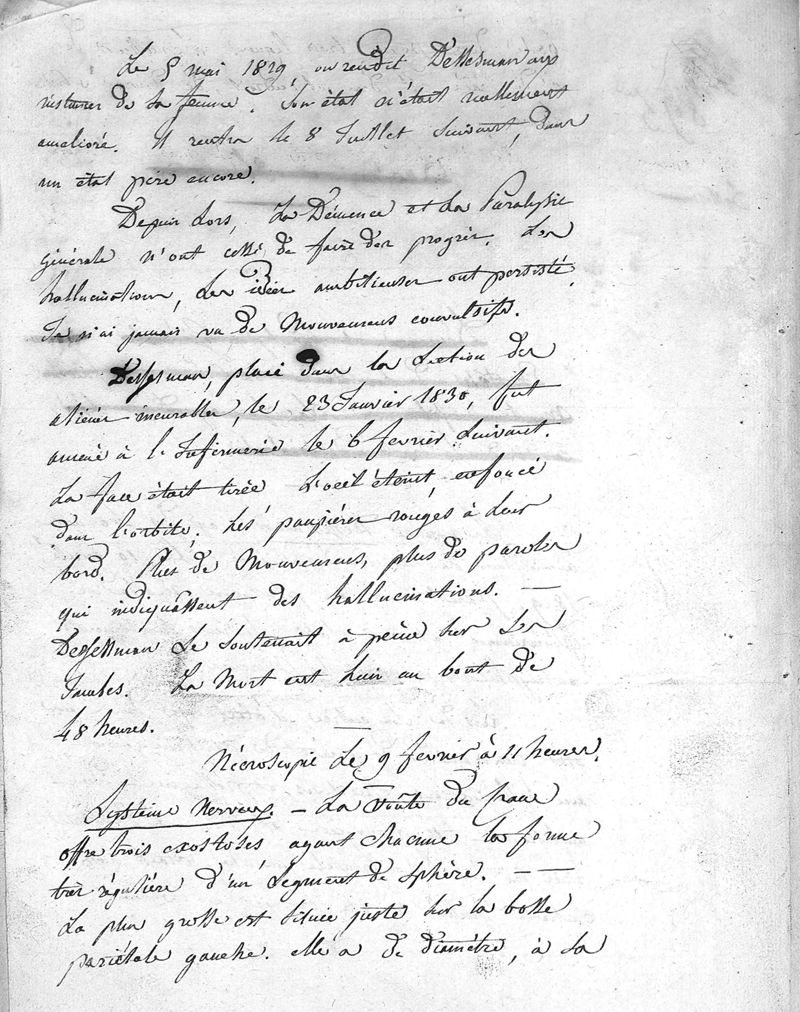 Le 5 mai 1829, on rendit Dessesman aux
instances de sa femme. Son état n'était nullement
amélioré. Il rentra le 8 Juillet suivant, dans
un état pire encore.
Depuis Lors, La Démence et La Paralysie
générale n'ont cessé de faire des progrès. Les
hallucinations, Les idées ambitieuses ont persisté.
Je n'ai jamais vu de Mouvemens convulsifs.
placé dans la Section des
aliénés incurables, le 23 Janvier 1830, fut
amené à l'Infirmerie le 6 fevrier suivant.
La face était tirée L'oeil éteint, enfoncé
dans l'orbite. Les paupières rouges à leur
bord. Plus de Mouvemens, plus de paroles
qui indiquassent des hallucinations. —
se soutenait à peine sur ses
Jambes. La Mort eut lieu au bout de
48 heures.
Nécroscopie Le 9 fevrier à 11 heures.
Système Nerveux. — La voûte du crane
offre trois exostoses ayant chacune la forme
très régulière d'un Segment de Sphère. — —
La plus grosse est située juste sur la bosse
pariétale gauche. elle a de diamètre, à sa